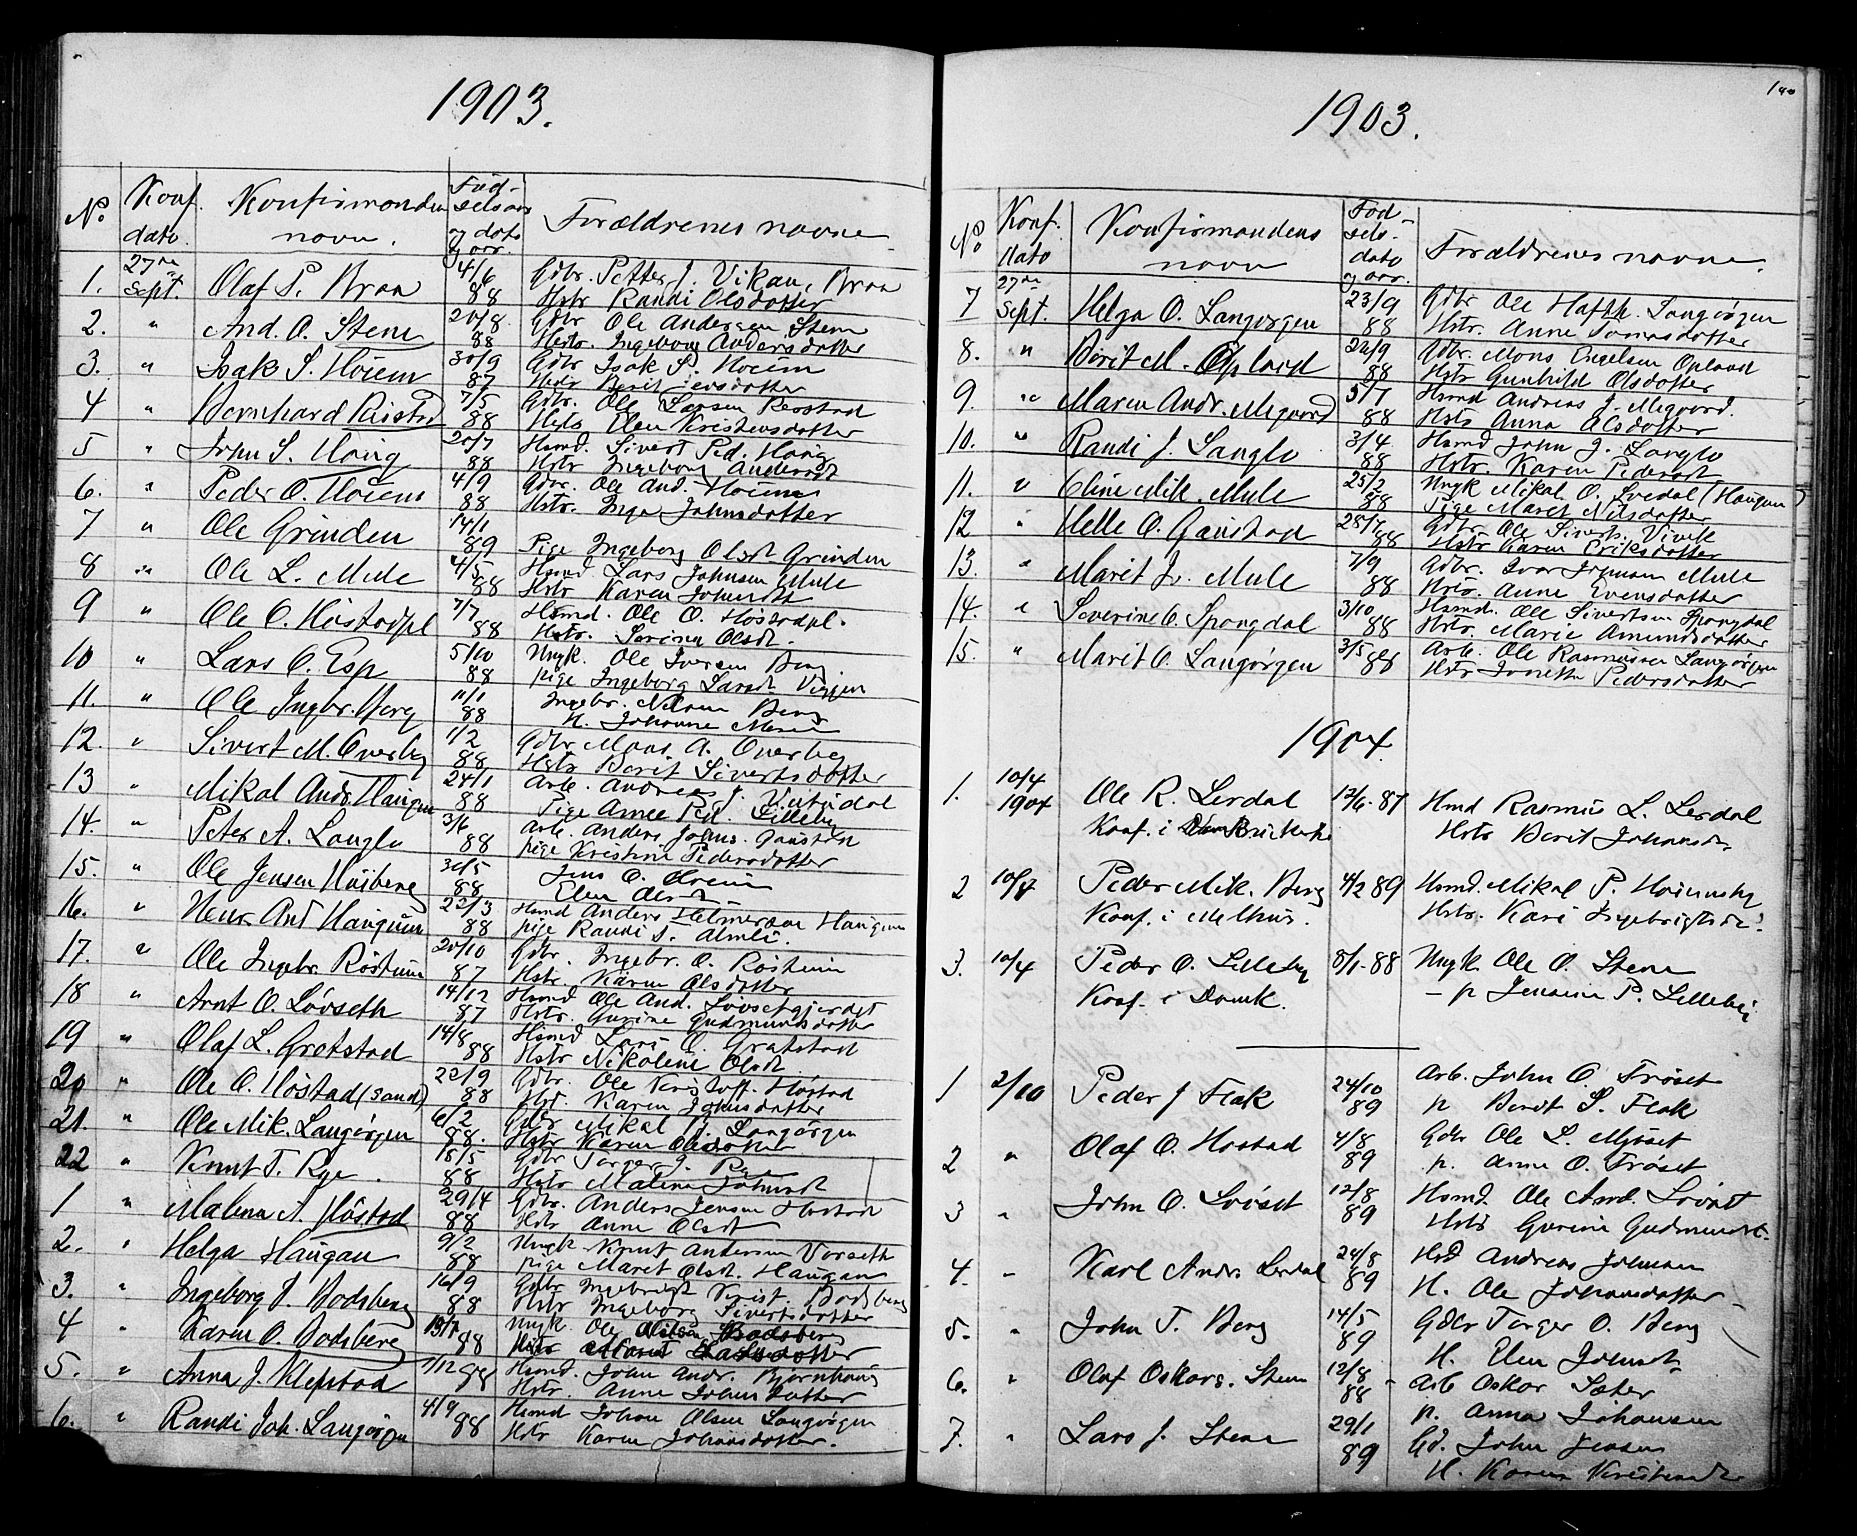 1903.
No Konf. dato. Konfirmanden navn. Fødselsaar og dato og aar. Forældrenes navne
1. 27de Sept. Olaf P. Braa 4/6 88 Gdbr. Petter J. Vikan, Braa
Hstr Randi Olsdatter
2. " And. O. Stene 20/8 88 Gdbr Ole Andersen Stene
Hstr. Ingeborg Andersdatter
3. " Isak I. Hoiem 30/9 87 Gdbr Isak P. Hoiem
Hstr Berit
4 " Bernhard 7/5 88 Gdbr. Ole Larsen
Hstr Elen Kristensdatter
5 " John S. Haug 20/7 88 Hsmd. Sivert Ped. Haug
Hstr Ingeborg Andersdt
6. " Peder O. Hoiem 4/9 88 Gdbr. Ole And. Hoiem
Hstr. Inga Johnsdatter
7 " Ole Grinden 14/1 89 Pige Ingeborg Olsdt Grinden
8 " Ole L. Mule 4/5 88 Hsmd Lars Johnsen Mule
Hstr Karen Johnsdt
9 " Ole O. Høstadpl 7/7 88 Hsmd. Ole O. Høstadpl.
Hstr. Serina Olsdt.
10 " Lars O. Esp 5/10 88 Ungk. Ole Iversen Berg
pige Ingeborg Larsdt Viggen
11. " Ole Ingbr. Berg 11/1 88 Ingebr. Nilsen Berg
H. Johanne
12. " Sivert M. Overby 1/2 88 Gdbr Mons A. Overby
Hstr Berit Sivertsdatter
13 " Mikal Andr. Haugen 24/1 88 Arb. Andreas J.
Pige Anne Ped. Lilleby
14. " Peter A. Langlo 3/6 88 Arb. Anders Johns. Ganstad
pige Kristine Pedersdatter
15. " Ole Jensen Husberg 30/5 88 Jens O.
Elen Olsd
16. " Henr. Ant Haugum 22/3 88 Hsmd Anders Helmersen Haugum
pige Randi T. Almli.
17. " Ole Ingebr. Røstum 20/10 87 Gdbr. Ingebr. O. Røstum
Hstr Karen Olsdatter
18 " Arnt O. Løvseth 14/12 87 Hsmd Ole And. Løvsetgjerdet
Hstr. Gurine Gudmundsdatter
19 " Olaf L. Gretstad 14/8 88 Hsmd Lars O. Gratstad
Hstr Nikoline Olsdt
20 " Ole O. Høstad (sand) 22/9 88 Gdbr. Ole Kristoff. Høstad
Hst. Karen Johnsdatter
21. " Ole Mik. Langørgen 6/2 88. Gdbr Mikal Langørgen
Hstr Karen Olsdatter
22 " Knut T. Rye. 18/5 88 Gdbr Torger J. Rye
Hstr Malena Johnsdt
1 " Malena A. Høstad 29/4 88 Gdbr. Anders Jensen Høstad
Hstr Anne Olsdt
2. " Helga Haugan 9/2 88 Ungk Knut Andersen Vorseth
pige Maret Olsdt. Haugan
3. " Ingeborg I. Bodsberg 16/9 88 Gdbr Ingebrigt Krist. Bodsberg
Hstr Ingeborg Sivertsdatter
4 " Karen O. Bodsberg 13/7 88 Ungk. Ole Nilsen Bodsberg
5. " Anna J. Klepstad 7/12 88 Hsmd. John Andr. Bjørnhaug
Hstr. Anne Johnsdatter
6. " Randi Joh. Langørgen 4/9 88 Hsmd Johan Olsen Langørgen
Hstr Karen Johansdatter.
1903.
No Konf. dato Konfirmandens navn Fødselsdato og aar. Forældrenes navne.
7 27de Sept. Helga O. Langørgen 23/9 88 Gdbr Ole Langørgen
Hstr. Anne Tomasdatter
8. " Berit M. Opland 22/9 88 Gdbr. Mons Engelsen Opland
Hstr Gunhild Olsdatter
9. " Maren Andr. Megaard 5/7 88 Hsmd Andreas J. Megaard.
Hstr Anna Olsdatter
10. " Randi J. Langlo 3/4 88 Hsmd John J. Langlo
Hstr. Karen Pedersdt
11. " Oline Mik. Mule 25/2 88 Ungk Mikal O. Svedal (Haugum)
Pige Maret Nilsdatter
12 " Helle O. Ganstad 28/7 88 Gdbr Ole Siverts. Vivek
Hstr Karen Eriksdatter
13. " Marit Iv. Mule 7/9 88 Gdbr. Ivar Johnsen Mule
Hstr. Anne Evensdatter
14. " Severine O. Spongdal 3/10 88 Hsmd. Ole Sivertsen Spongdal
Hstr. Marie Amundsdatter
15. " Marit O. Langørgen 3/5 88 Arb. Ole Rasmussen Langørgen
Hstr Jonetta Pedersdatter
1904.
1. 10/4 1904 Ole R. Lerdal 12/6 87 Hsmd Rasmus L. Lerdal
Konf. i Hstr Berit Johansd.
2 10/4 Peder Mik. Berg 4/2 89 Hsmd. Mikal P.
Konf. i Melhus. Hstr. Kari Ingebrigtsd.
3. 10/4 Peder O. Lilleby 8/1-88 Ungk. Ole O. Stene
Konf. i Domk. - p Jensine P. Lilleby
1 2/10 Peder J Flak 24/10 89 Arb. John O. Frøset
p Berit S. Flak
2 " Olaf O. Høstad 4/8 89 Gdbr Ole L. Mjøset
p. Anne O. Frøset
3 " John O. Løvset 12/8 89 Hsmd. Ole And. Løvset
Hstr Gurine Gudmundsd.
4. " Karl Andr. Lerdal 24/8 89 Hsd Andreas Johnsen
H. Ole Johansdatter
5. " John T. Berg 14/5 89 Gdbr Torger O. Berg
H. Elen Johnsdt
6. " Olaf Oskars. Stene 12/8 88 Arb Oskar Sæter
p. Anna Johansen
7. " Lars J. Stene 29/1 89 Gd. John Jensen
H. Karen